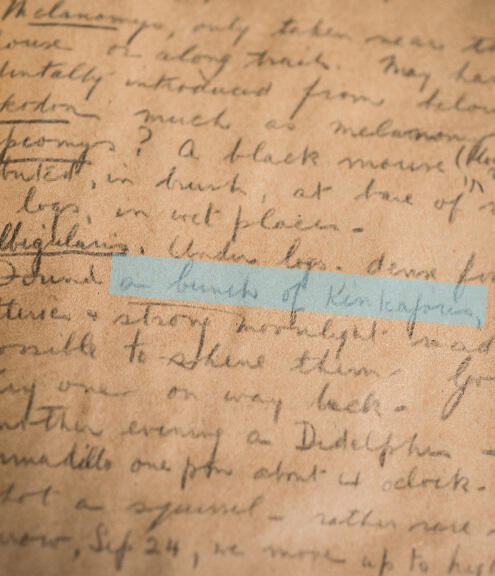 Melanomys, only taken near th
ouse or along trail. May ha
dentally introduced from below
kodon much as melanomys
peomys? A black mouse
buted, in brush, at base of
logs, in wet places -
lbigularis. Under logs. dense
Found a bunch of Kinkajous,
tteries & strong moonlight mad
ossible to shine them - Go
key one on way back -
nother evening a Didelphis -
rmadillo one pm about 4 oclock -
hot a squirrel - rather rare
row, Sep 24, we move up to hig